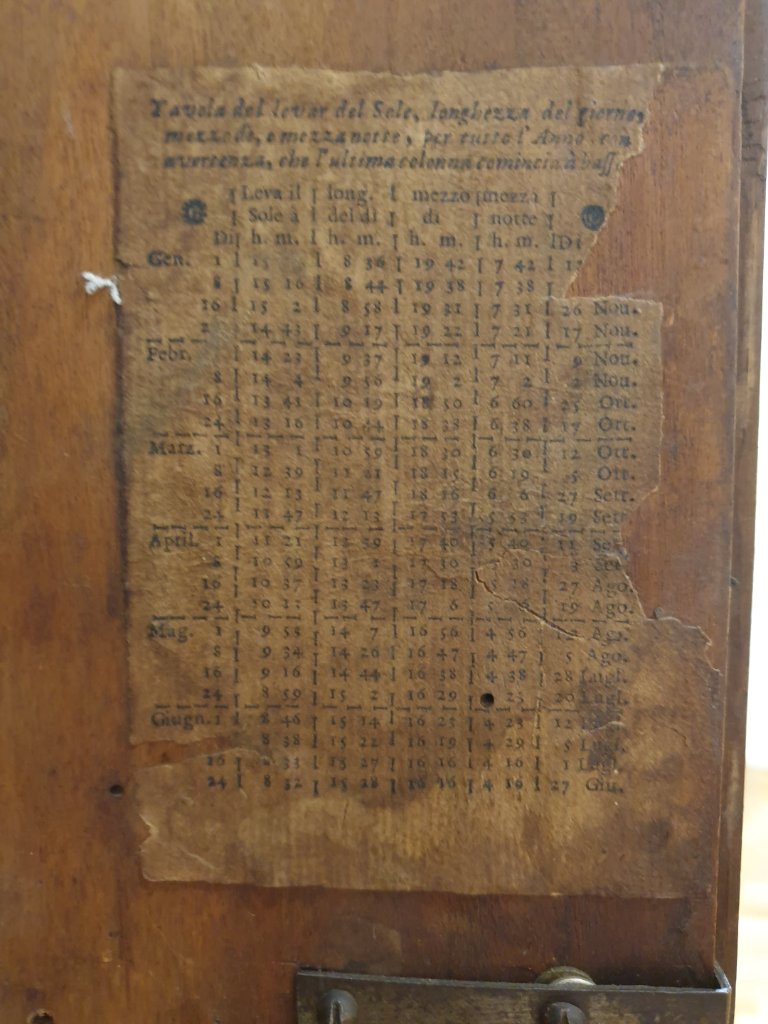 Tavola del levar del Sole, longhezza del giorno,
mezzodi, e mezza notte, per tutto l'Anno, con
avertenza, che l'ultima colonna comincia à bass
Leva il long. mezzo mezza
Sole à del di di notte
Di h. m. h. m. h. m. h. m. Di
Gen. 1 15 8 36 19 42 7 42 12
8 15 16 8 44 19 38 7 38
16 15 2 8 58 19 31 7 31 26 Nou.
2 14 43 9 17 19 22 7 21 17 Nou.
Febr. 14 23 9 37 19 12 7 11 9 Nou.
8 14 4 9 56 19 2 7 2 2 Nou.
16 13 41 10 19 18 50 6 60 25 Ott.
24 13 16 10 44 18 38 6 38 17 Ott.
Marz. 1 13 1 10 59 18 30 6 30 12 Ott.
8 12 39 11 21 18 15 6 19 5 Ott.
16 12 13 11 47 18 16 6 6 27 Sett.
24 11 47 12 13 17 53 5 53 19 Sett.
April. 1 11 21 12 39 17 40 5 40 11 Set
8 10 59 13 1 17 30 5 30 3 Set
16 10 37 13 23 17 18 5 18 27 Ago.
24 10 13 47 17 6 5 19 Ago.
Mag. 1 9 53 14 7 16 56 4 56 12 Ago.
8 9 34 14 26 16 47 4 47 5 Ago.
16 9 16 14 44 16 38 4 38 28 Lugl.
24 8 59 15 2 16 29 23 20 Lugl.
Giugn. 1 8 46 15 14 16 23 4 23 12 Lugl.
8 38 15 22 16 19 4 29 5 Lugl.
16 8 33 15 27 16 16 4 16 1 Lugl.
24 8 32 15 28 16 16 4 16 27 Giu.